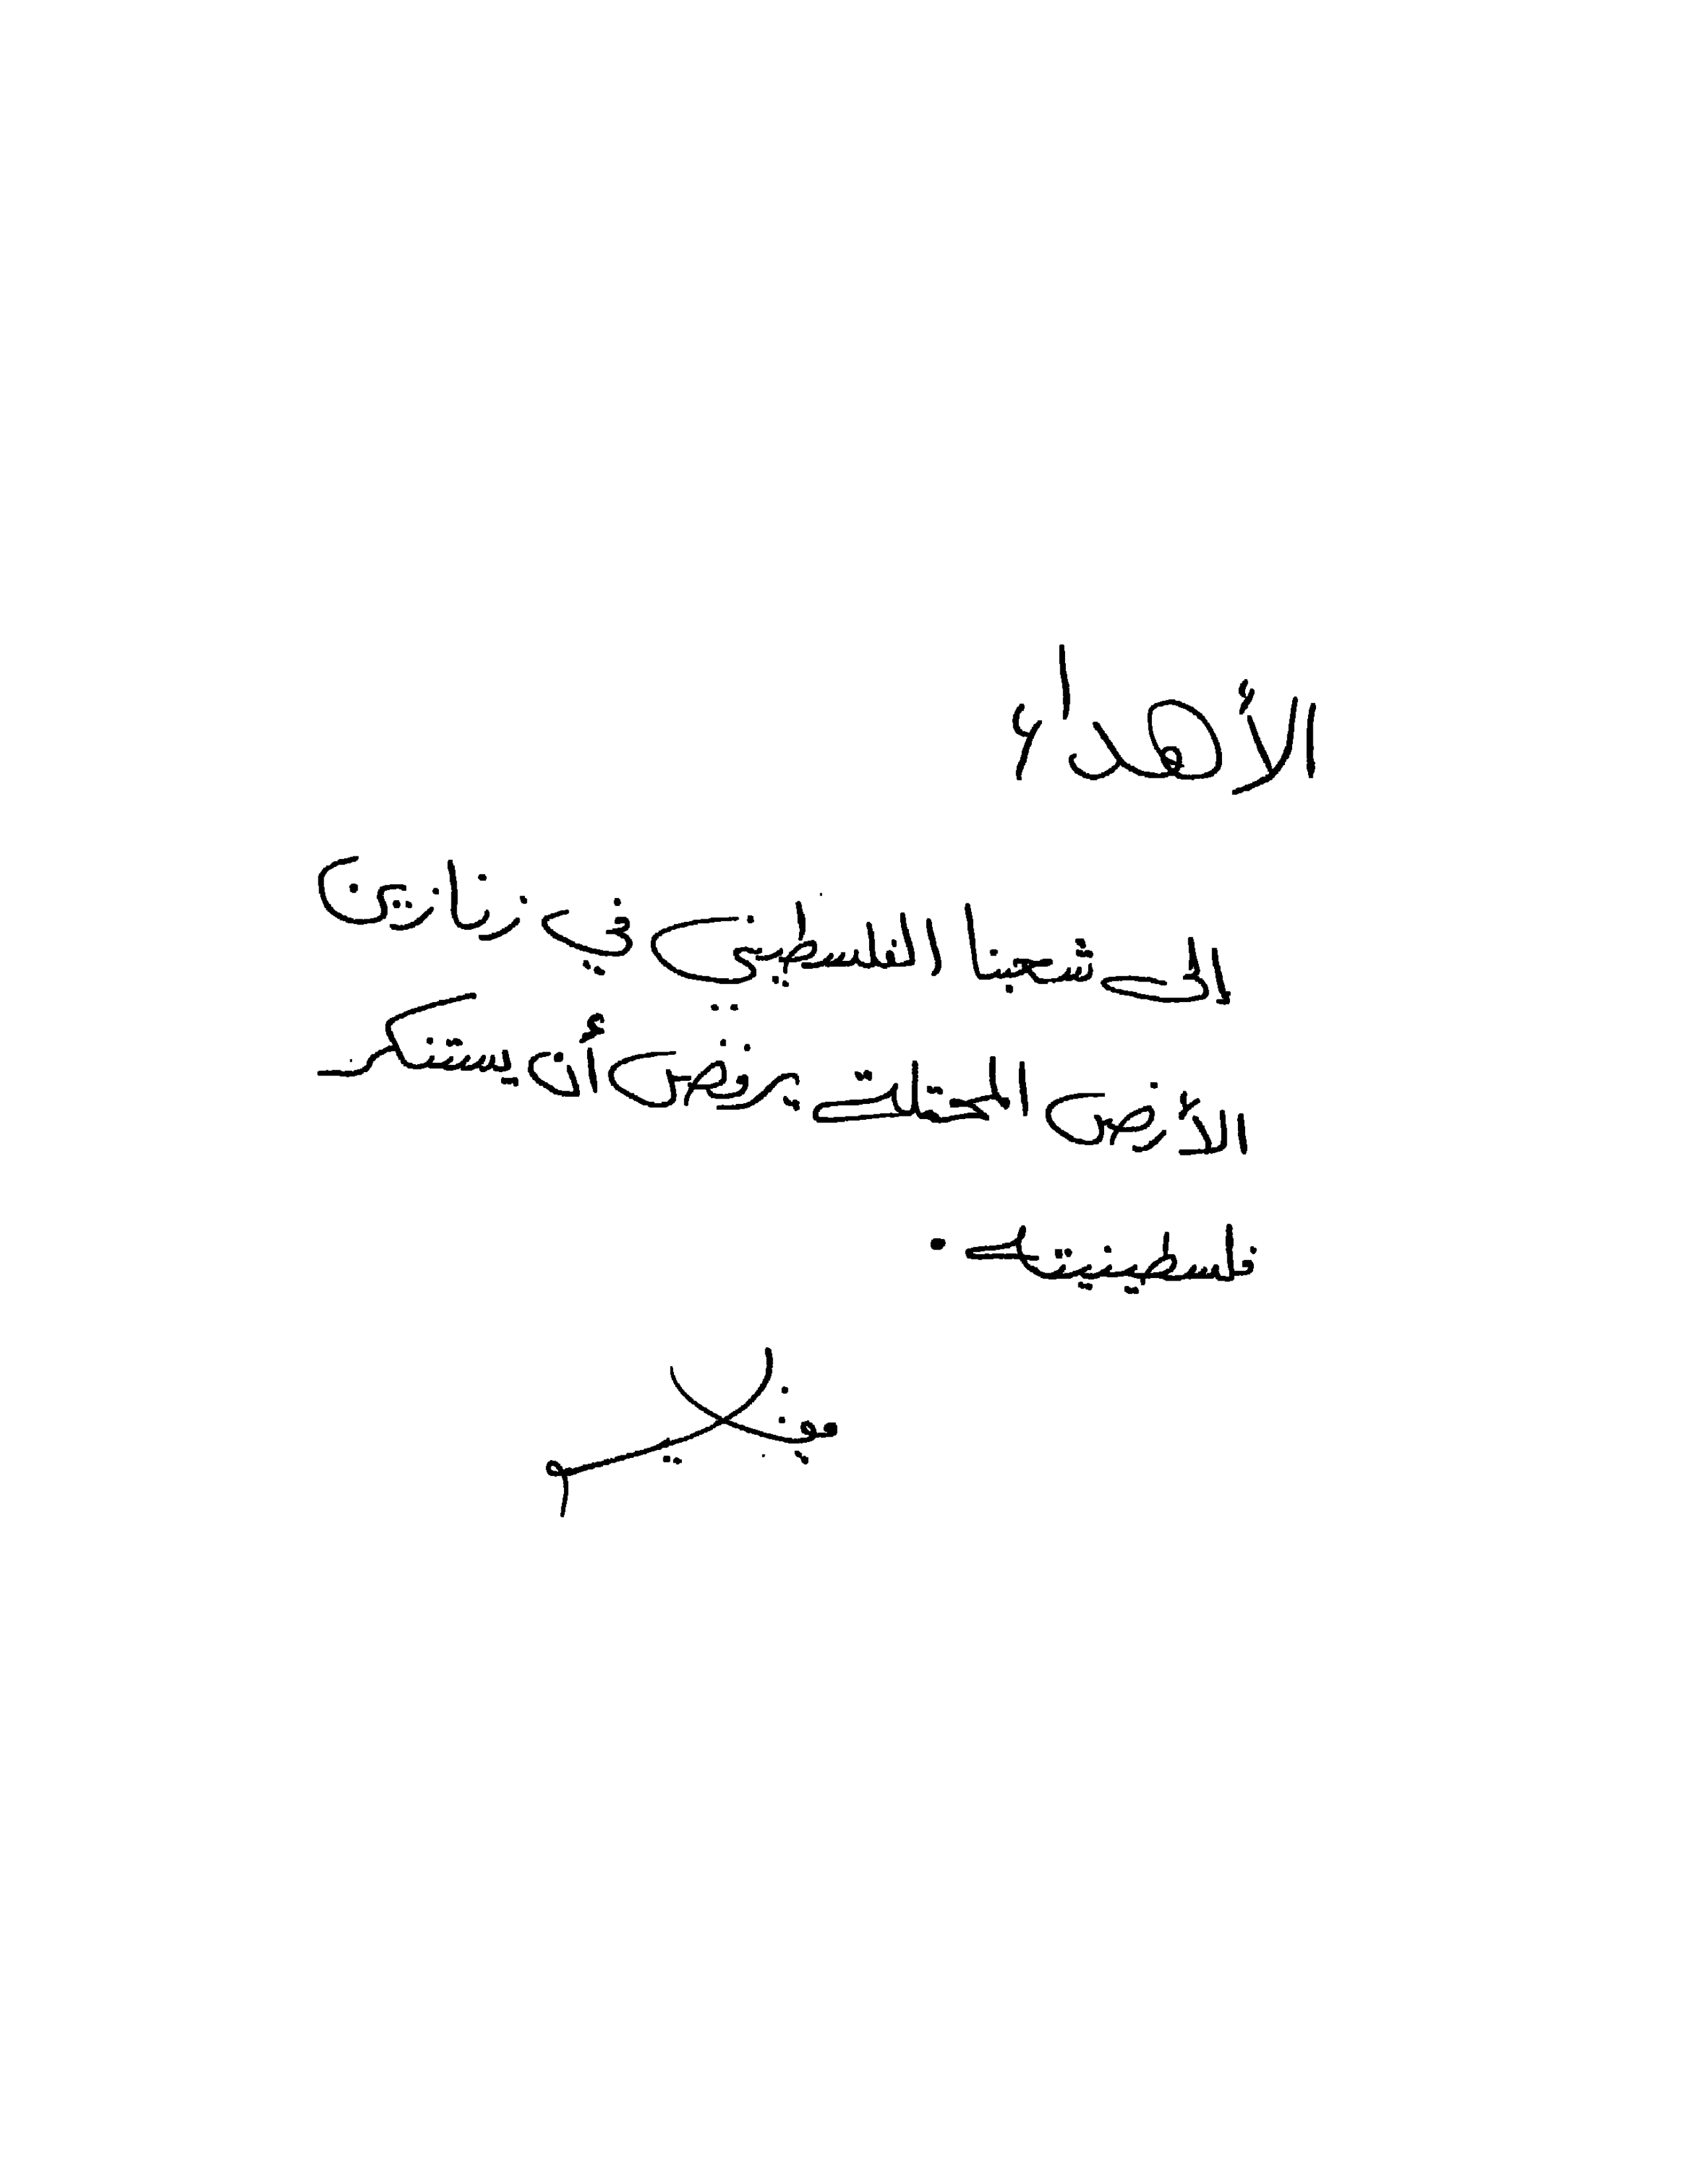 الأهداء
إلى شعبنا الفلسطيني في زنازين
الأرض المحتلة يرفض أن يستنكر
فلسطينيته .